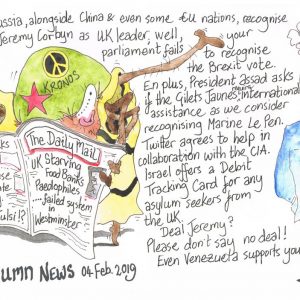 ussia, alongside China & even some EU nations, recognise
Jeremy Corbyn as UK leader, well, your
parliament fails to recognise
the Brexit vote.
En plus, President assad asks
if the Gilets Jaunes require international
assistance as we consider
recognising Marine Le Pen.
Twitter agrees to help in
collaboration with the CIA.
Israel offers a Debit
Tracking Card for any
asylum seekers from
the UK.
Deal Jeremy?
Please don't say no deal!
Even Venezuela supports you
KRONOS
The Daily Mail
UK Starving
Food Banks
Paedophiles
....failed system
in
Westminster
ulsi!?
UMN NEWS 04 Feb. 2019